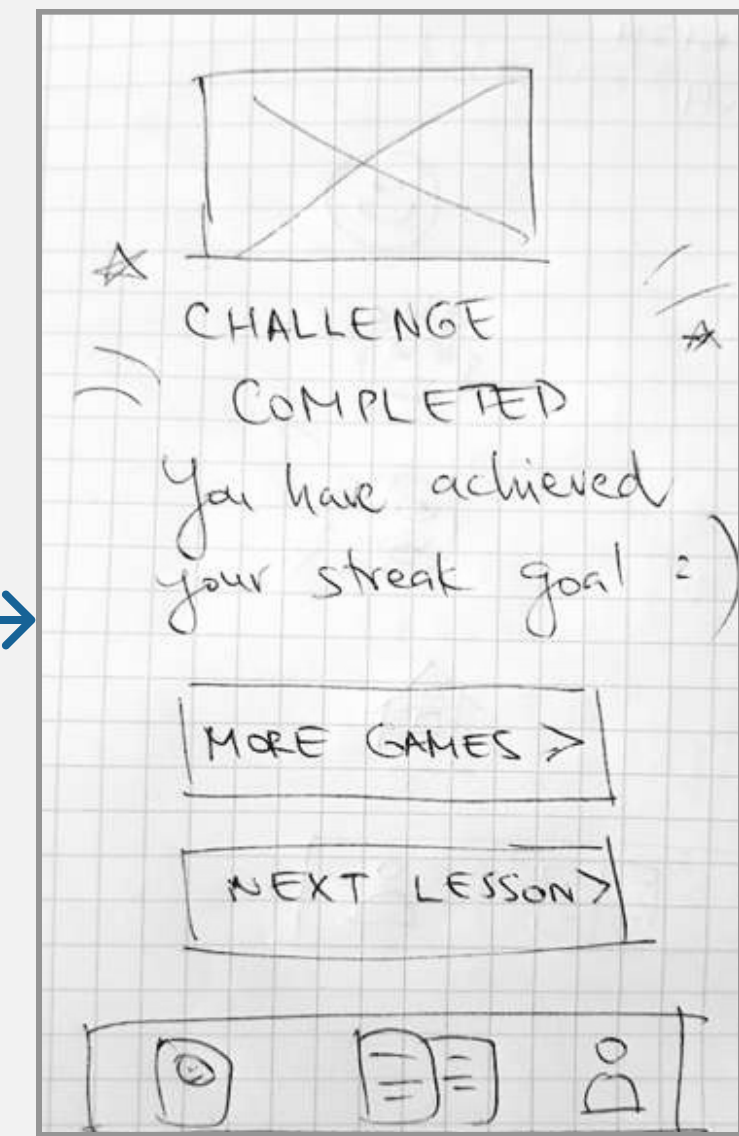 CHALLENGE
COMPLETED
You have achieved
your streak goal :)
MORE GAMES >
NEXT LESSON>